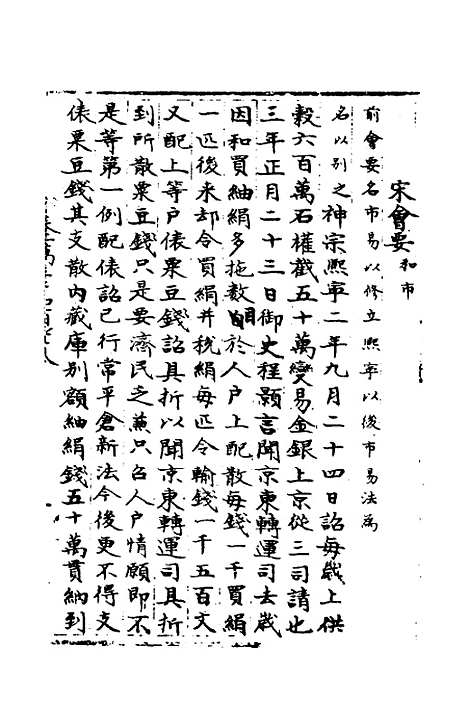 宋會要 和市
前會要名市易以修立熙寧以後市易法爲
名以别之神宗熙寧二年九月二十四日詔每歲上供
穀六百萬石權截五十萬變易金銀上京從三司請也
三年正月二十三日御史程顥言聞京東轉運司去歲
因和買紬絹多拖數目於人户上配散每錢一千買絹
一匹後來却令買絹并稅絹每匹令輸錢一千五百文
又配上等户俵粟豆錢詔具折以聞京東轉運司具折
到所散粟豆錢只是要濟民乏兼只召人户情願即不
是等第一例配俵詔已行常平倉新法今後更不得支
俵粟豆錢其支散内藏庫别額紬絹錢五十萬貫納到